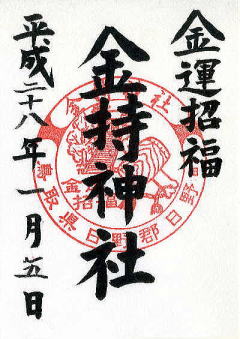 金運招福
金持神社
平成二十八年一月五日
鳥取県日野郡日野
金招福